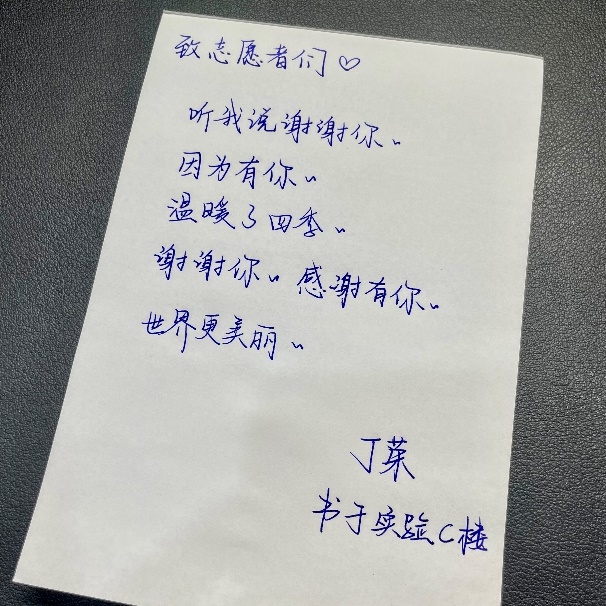 致志愿者们♡
听我说谢谢你~
因为有你~
温暖了四季~
谢谢你~ 感谢有你~
世界更美丽~
丁
书于实验C楼